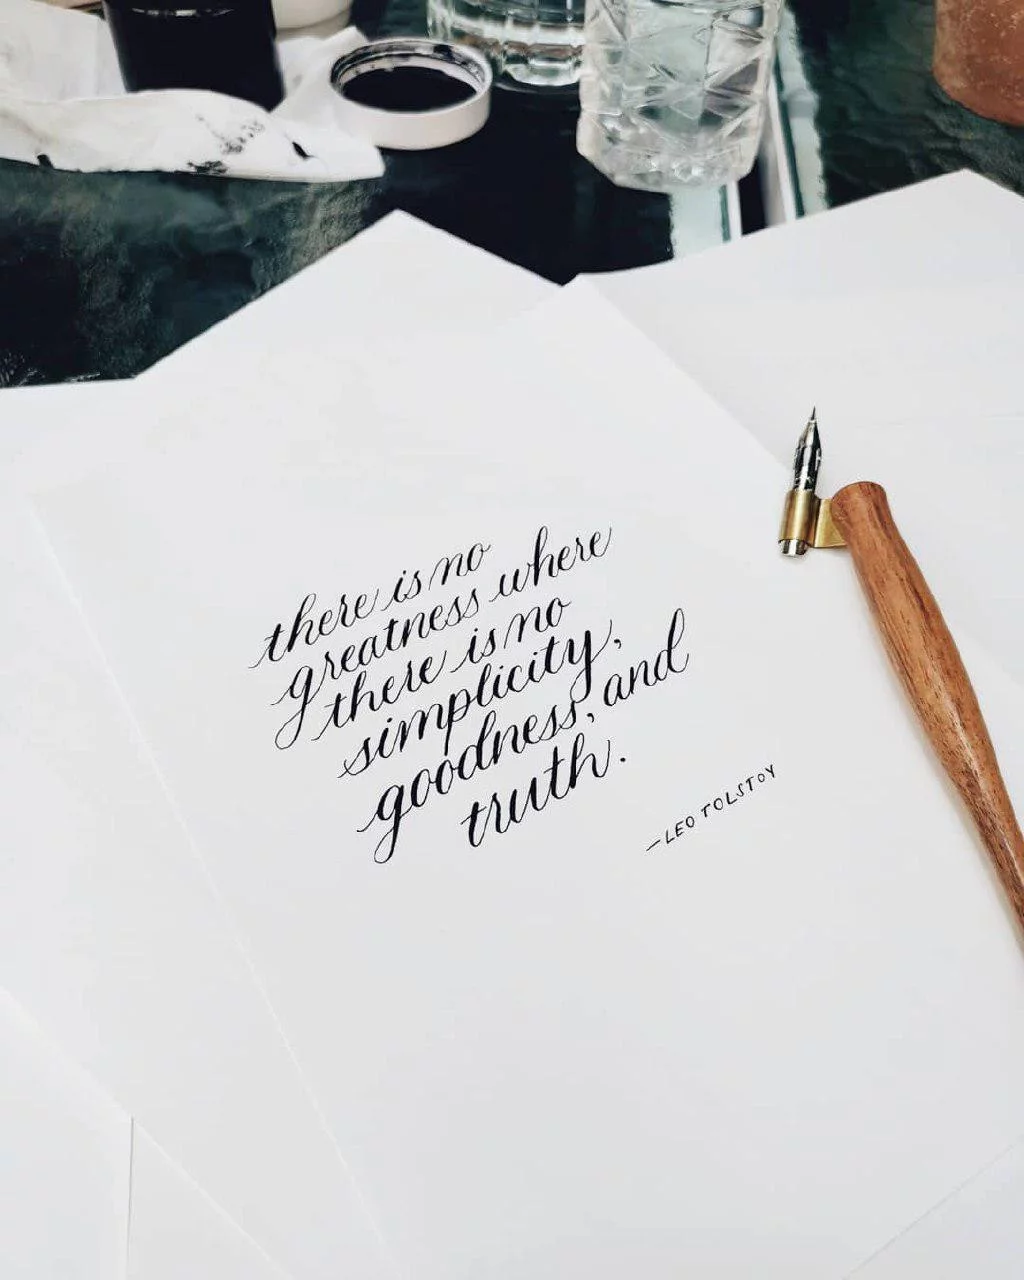 there is no
greatness where
there is no
simplicity,
goodness, and
truth.
—LEO TOLSTOY